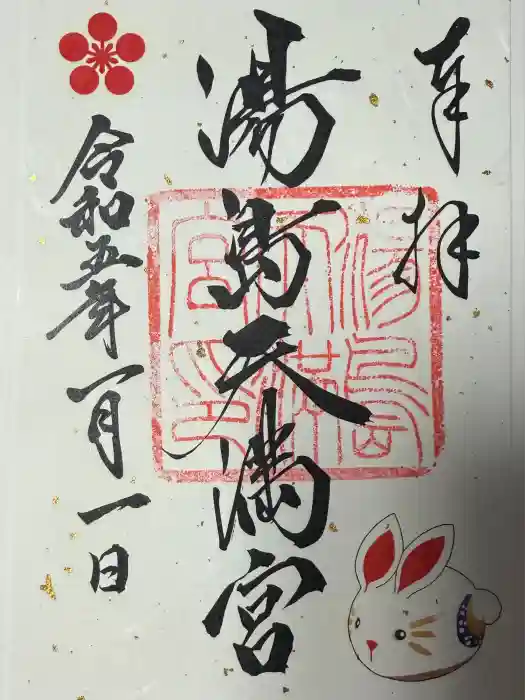 奉拝
湯島天満宮
令和五年一月一日
湯島天満宮印